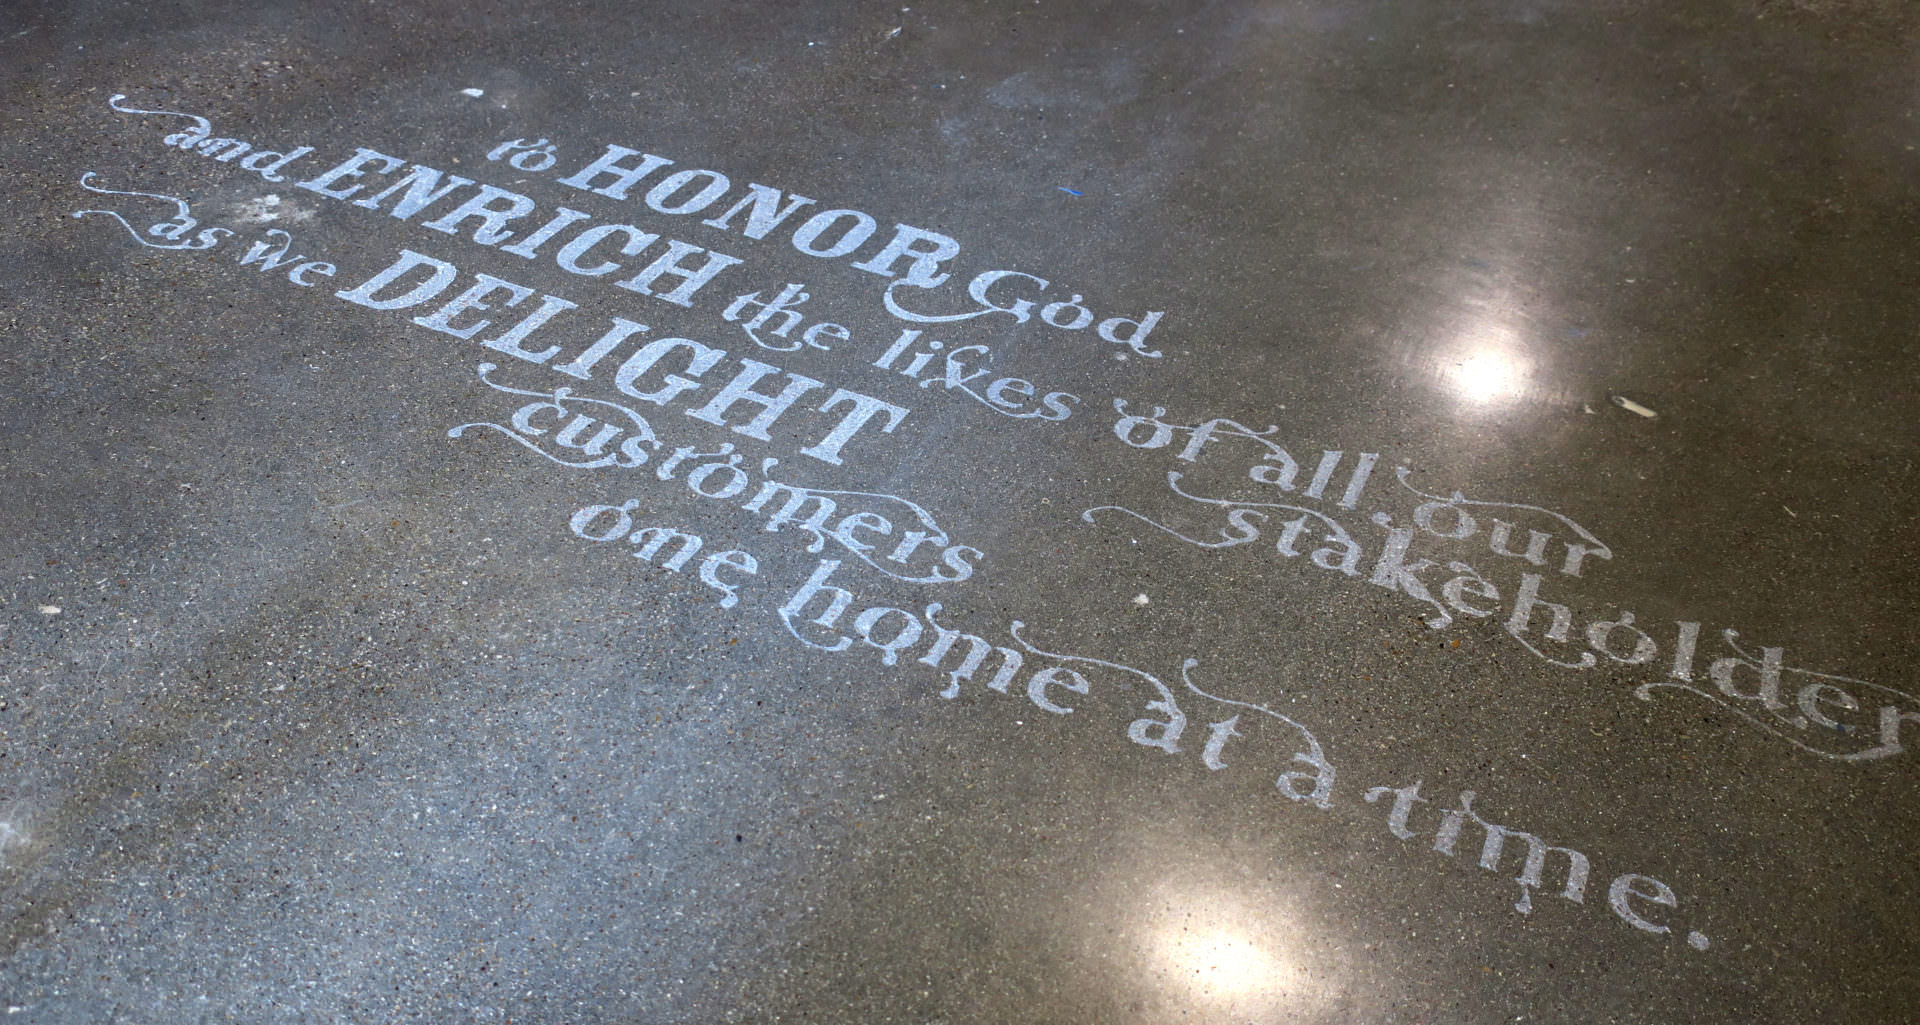 to HONOR God
and ENRICH the lives of all our stakeholder
as we DELIGHT customers
one home at a time.